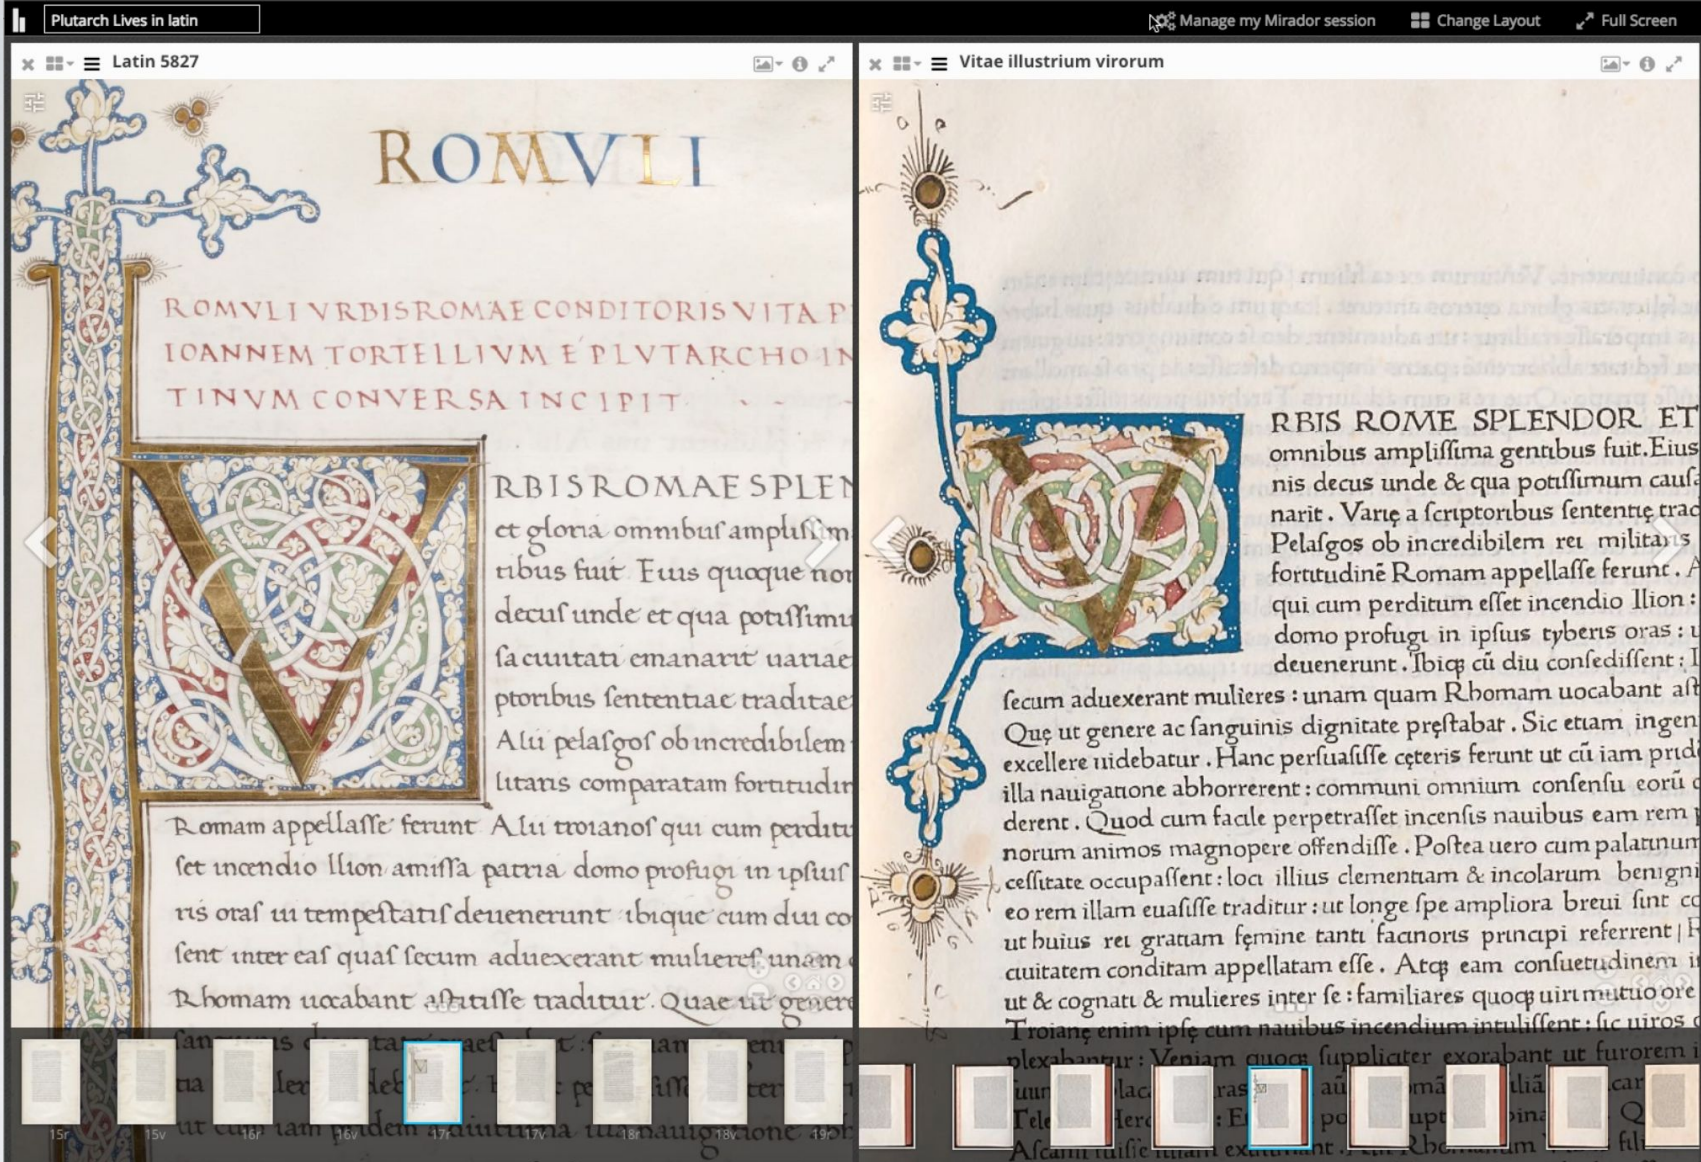 Plutarch Lives in latin
Manage my Mirador session
Change Layout
Full Screen
Latin 5827
ROMVLI
ROMVLI VRBIS ROMAE CONDITORIS VITA P
IOANNEM TORTELLIVM E PLVTARCHO IN
TINVM CONVERSA INCIPIT
V
RBIS ROMAE SPLEN
et gloria omnibuſ ampliſſim
tibus fuit Eius quoque non
decuſ unde et qua potiſſimu
ſa ciuitati emanarit uariae
ptoribus ſententiae traditae
Alii pelaſgoſ ob incredibilem
litaris comparatam fortitudin
Romam appellaſſe ferunt Alii troianoſ qui cum perditu
ſet incendio Ilion amiſſa patria domo profugi in ipſiuſ
ris oraſ ui tempeſtatiſ deuenerunt ibique cum diu co
ſent inter eaſ quaſ ſecum aduexerant mulereſ unam
Rhomam uocabant aſtitiſſe traditur. Quae ut genere
15r 15v 16r 16v 17r 17v 18r 18v 19r
Vitae illustrium virorum
V
RBIS ROME SPLENDOR ET
omnibus ampliſſima gentibus fuit. Eius
nis decus unde & qua potiſſimum cauſa
narit. Varię a ſcriptoribus ſententię trad
Pelaſgos ob incredibilem rei militaris
fortitudinē Romam appellaſſe ferunt. A
qui cum perditum eſſet incendio Ilion:
domo profugi in ipſius tyberis oras: u
deuenerunt. Ibiqꝫ cū diu conſediſſent: I
ſecum aduexerant mulieres: unam quam Rhomam uocabant aſt
Quę ut genere ac ſanguinis dignitate pręſtabat. Sic etiam ingen
excellere uidebatur. Hanc perſuaſiſſe cęteris ferunt ut cū iam pride
illa nauigatione abhorrerent: communi omnium conſenſu eorū c
derent. Quod cum facile perpetraſſet incenſis nauibus eam rem p
norum animos magnopere offendiſſe. Poſtea uero cum palatinum
ceſſitate occupaſſent: loci illius clementiam & incolarum benigni
eo rem illam euaſiſſe traditur: ut longe ſpe ampliora breui ſint co
ut huius rei gratiam fęmine tanti facinoris principi referrent |
ciuitatem conditam appellatam eſſe. Atqꝫ eam conſuetudinem i
ut & cognati & mulieres inter ſe: familiares quoqꝫ uiri mutuo ore
Troianę enim ipſę cum nauibus incendium intuliſſent: ſic uiros c
plexabantur: Veniam quoqꝫ ſuppliciter exorabant ut furorem i